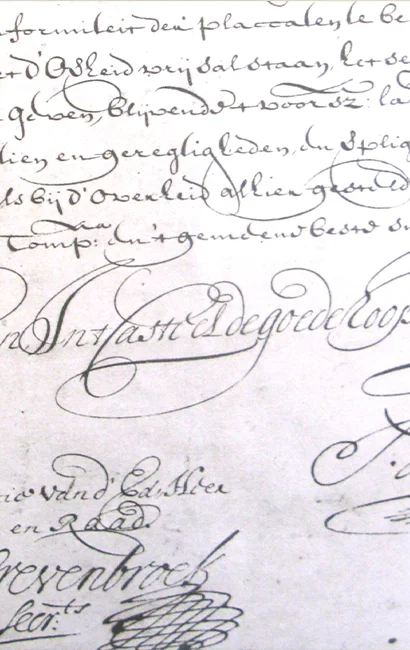 nformiteit der placcaten te be
et d'Oʃheid vrij sal staan, het se
geven, blijvende 't voorsz: la
lien en geregligheden, du Splig
ls bij d'Overheid alhier gesteld
Comp: du 't gemeene beste en
in Int Casteel de goede hoop
rie van d' Ed: Heer
en Raad
Grevenbroek
Secrts